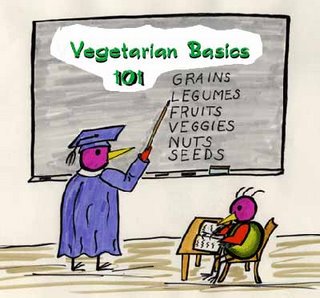 Vegetarian Basics
101
GRAINS
LEGUMES
FRUITS
VEGGIES
NUTS
SEEDS